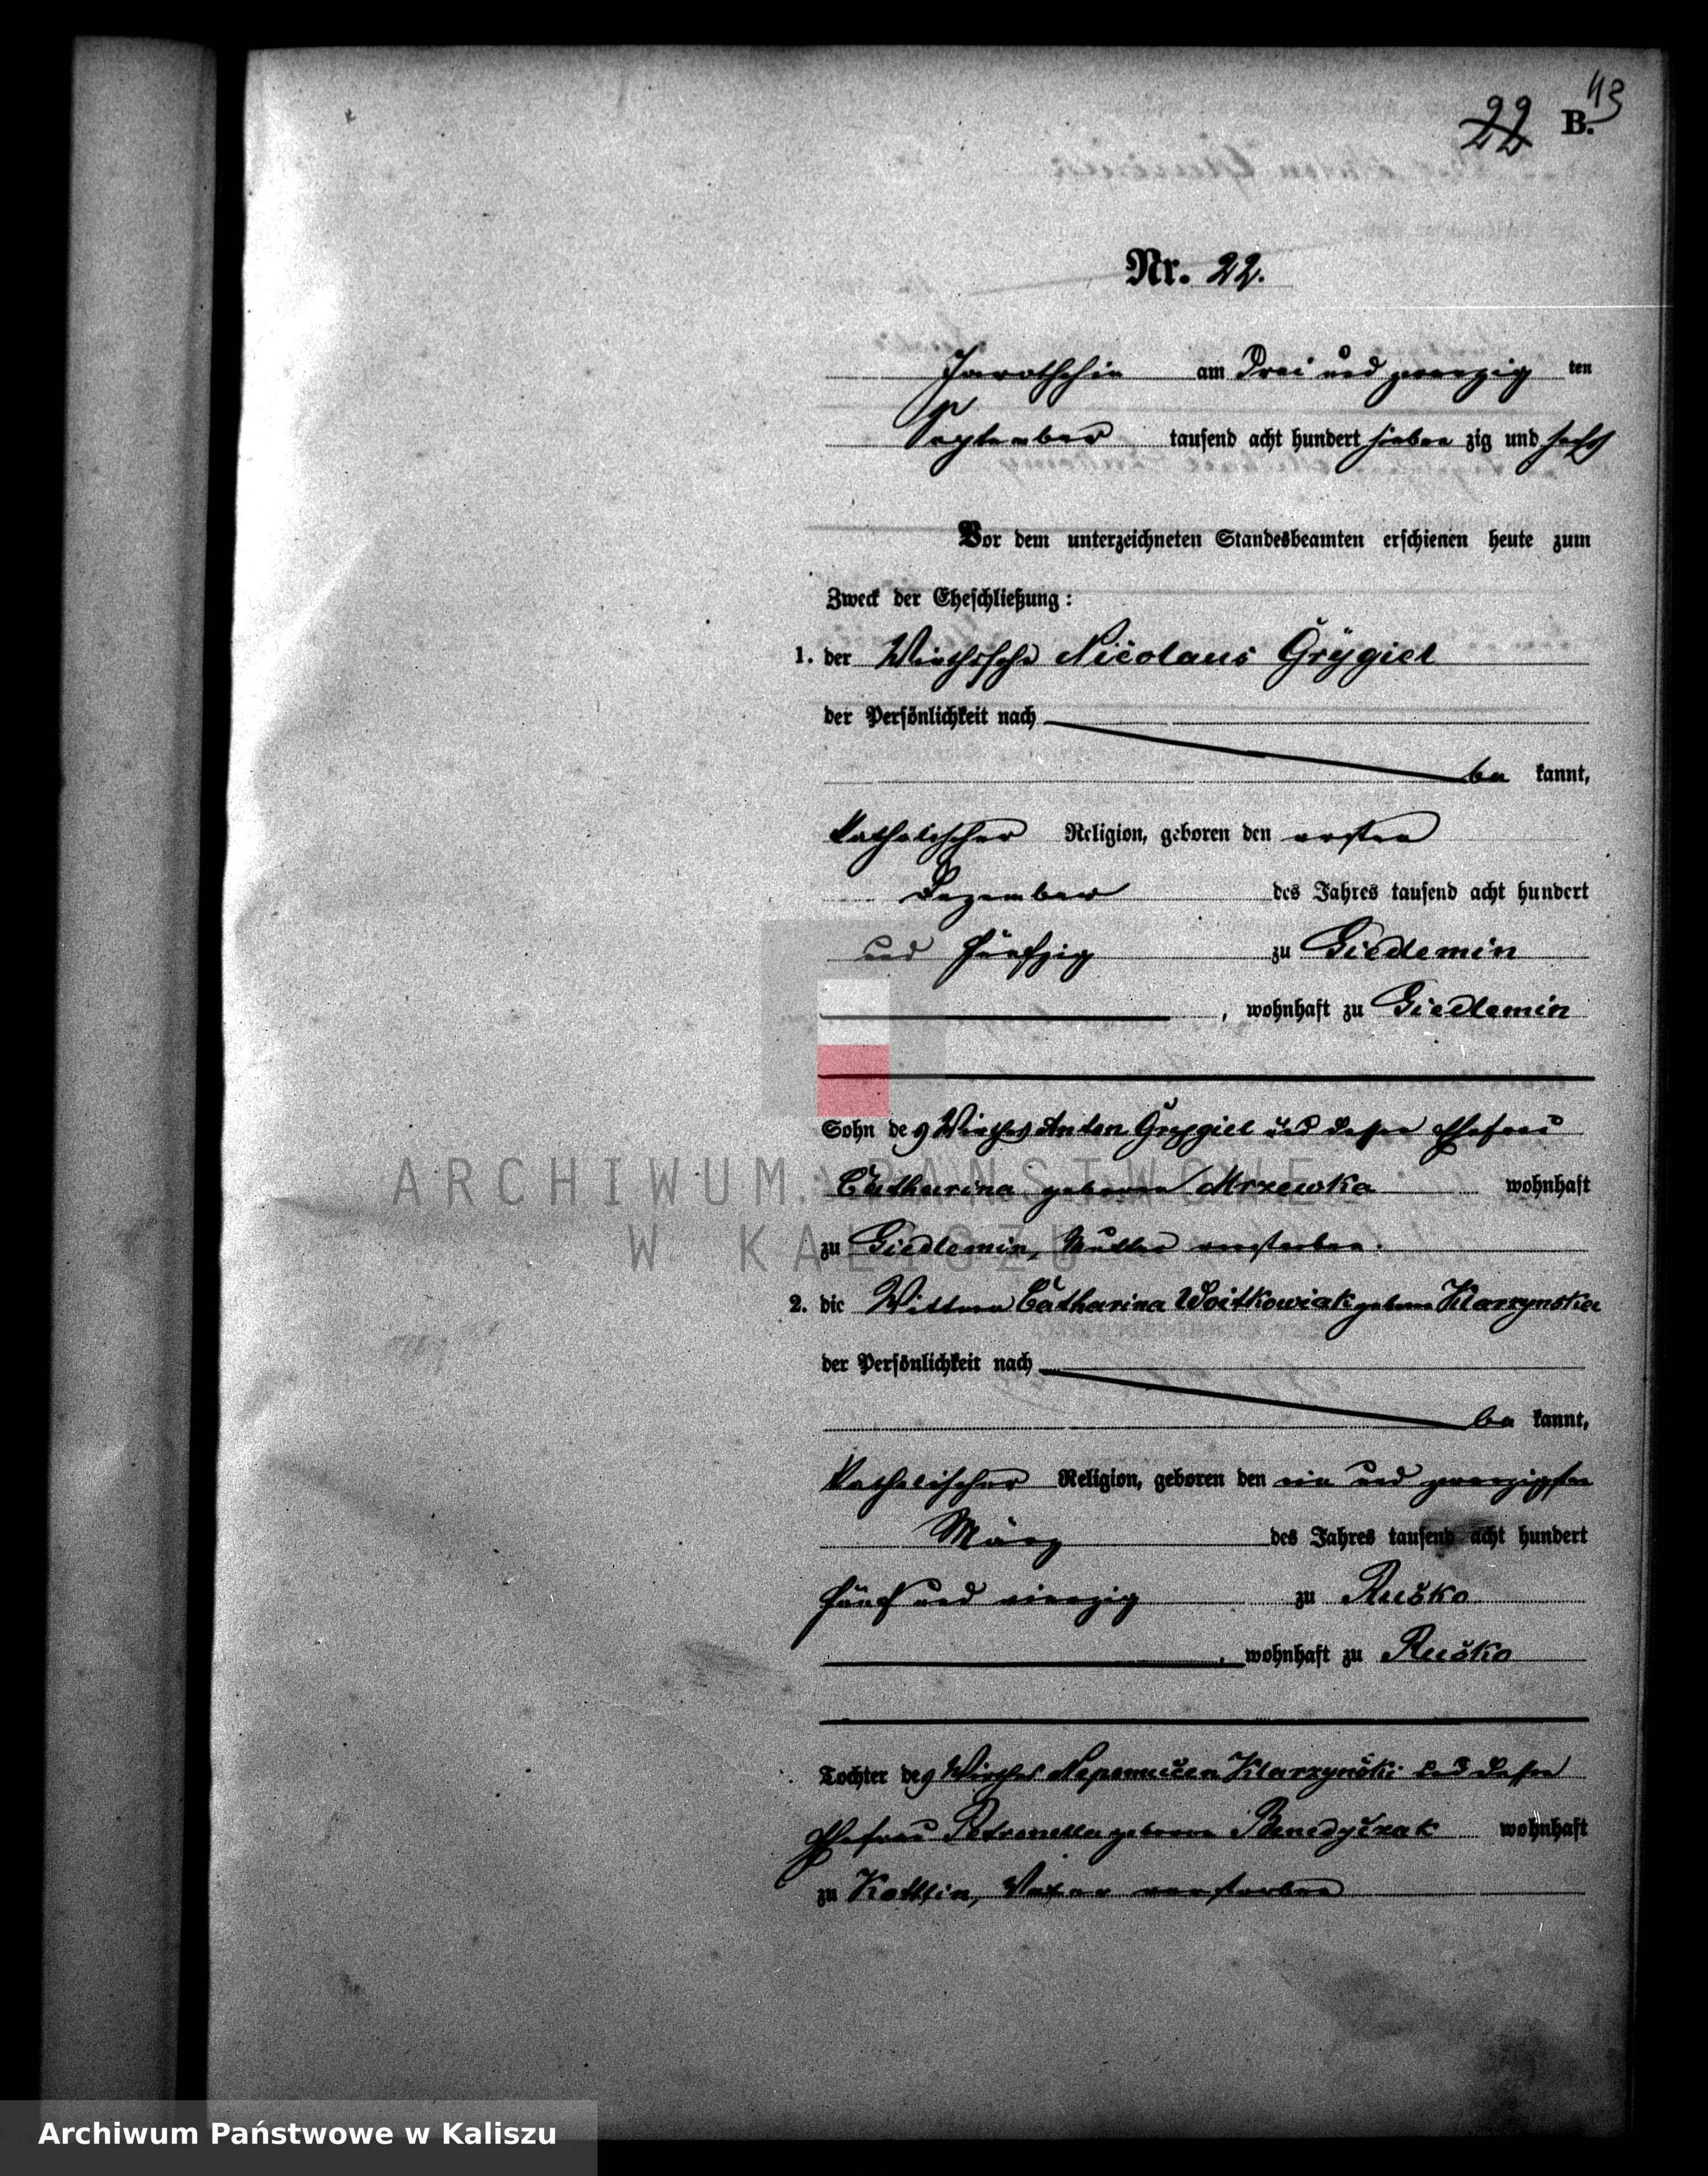 43
22 B.
Nr. 22.
Jarotschin am drei und zwanzig ten
September tausend acht hundert sieben zig und sechs
Vor dem unterzeichneten Standesbeamten erschienen heute zum
Zweck der Eheschließung:
1. der Wirthssohn Nicolaus Grygiel
der Persönlichkeit nach
be kannt,
katholischer Religion, geboren den ersten
Dezember des Jahres tausend acht hundert
und fünfzig zu Giedlemin
, wohnhaft zu Giedlemin
Sohn des Wirthes Anton Grygiel und dessen Ehefrau
Catharina geborene Mrzewka wohnhaft
zu Giedlemin, Mutter verstorben.
2. die Wittwe Catharina Woitkowiak geborene Klarzynska
der Persönlichkeit nach
be kannt,
katholischer Religion, geboren den ein und zwanzigsten
März des Jahres tausend acht hundert
fünf und vierzig zu Rusko
, wohnhaft zu Rusko
Tochter des Wirthes Nepomucen Klarzynski und dessen
Ehefrau Petronella geborene Benedyczak wohnhaft
zu Kottlin, Vater verstorben
ARCHIWUM PAŃSTWOWE
W KALISZU
Archiwum Państwowe w Kaliszu